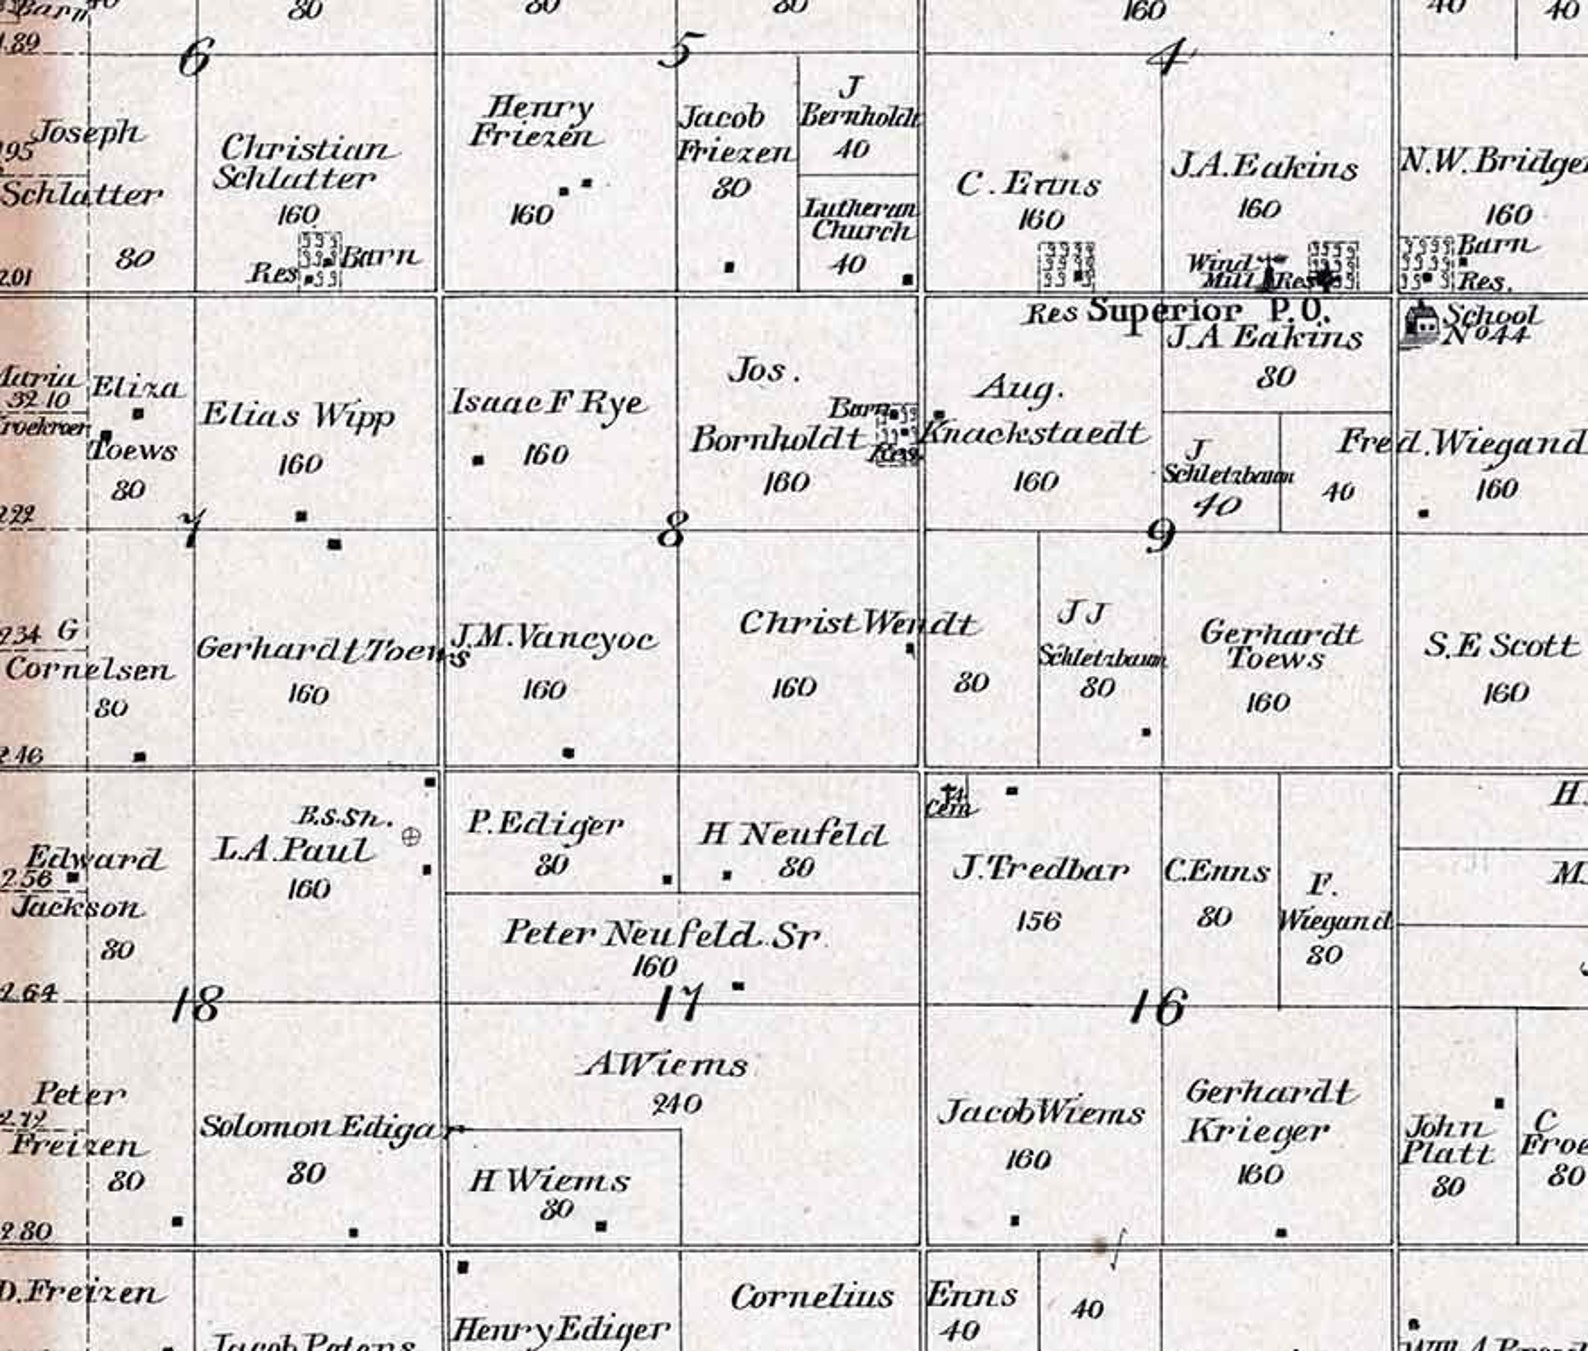 Barn
40
80
80
80
160
40
40
1.89
6
5
4
Joseph
Schlatter
80
Christian
Schlatter
160
Res
Barn
Henry
Friezen
160
Jacob
Friezen
80
J
Bernholdt
40
Lutheran
Church
40
C. Enns
160
J.A.Eakins
160
Wind
Mill
Res
N.W. Bridge
160
Barn
Res.
195
201
Res
Superior P.O.
J.A Eakins
80
School
No 44
Maria
32 10
Eliza
Toews
80
Elias Wipp
160
Isaac F Rye
160
Jos.
Bornholdt
160
Barn
Res
Aug.
Knackstaedt
160
J
Schletzbaum
40
Fred. Wiegand
40
160
222
7
8
9
234
G
Cornelsen
80
Gerhardt Toews
160
J.M.Vancyoc
160
Christ Wendt
160
80
J J
Schletzbaum
80
Gerhardt
Toews
160
S.E Scott
160
246
B.S.Sh.
L.A.Paul
160
Edward
256
Jackson
80
P.Ediger
80
H Neufeld
80
Peter Neufeld Sr
160
Cem
J.Tredbar
156
C.Enns
80
F.
Wiegand
80
H.
M.
264
18
17
16
Peter
272
Freizen
80
Solomon Edigar
80
A Wiems
240
H Wiems
80
Jacob Wiems
160
Gerhardt
Krieger
160
John
Platt
80
C
Froe
80
280
D. Freizen
Jacob Peters
Henry Ediger
Cornelius Enns
40
40